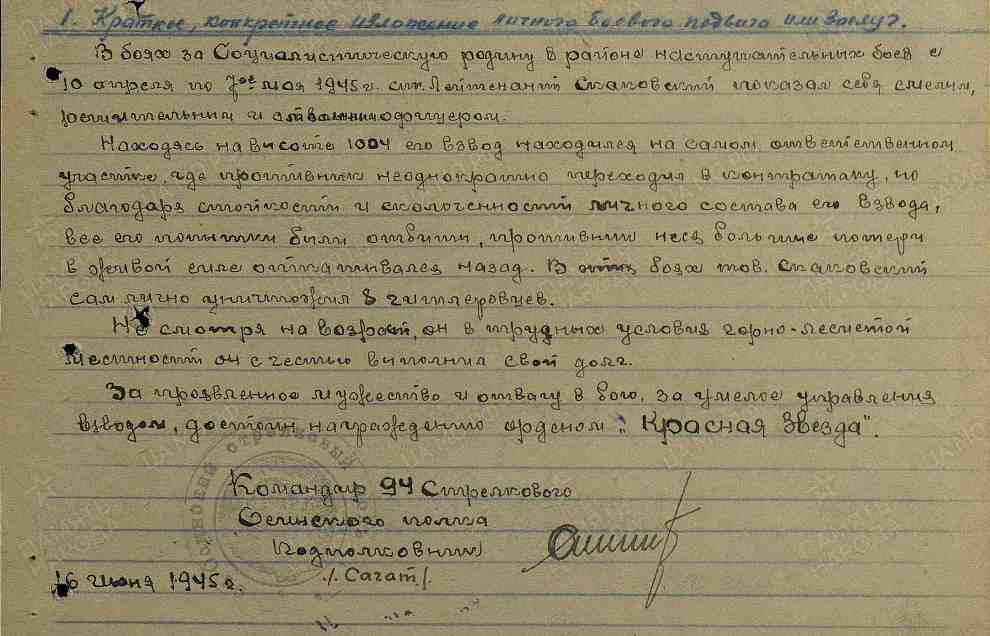 1. Краткое, конкретное изложение личного боевого подвига или заслуг.
В боях за Социалистическую родину в районе наступательных боев с
10 апреля по 7ое мая 1945 г. ст. Лейтенант Скаковский показал себя смелым,
решительным и отважным офицером.
Находясь на высоте 1004 его взвод находился на самом ответственном
участке, где противник неоднократно переходил в контратаку, но
благодаря стойкости и сколоченности личного состава его взвода,
все его попытки были отбиты, противник неся большие потери
в живой силе откатывался назад. В боях тов. Скаковский
сам лично уничтожил 8 гитлеровцев.
Не смотря на возраст, он в трудных условиях горно-лесистой
местности он с честью выполнил свой долг.
За проявленное мужество и отвагу в бою, за умелое управления
взводом, достоин награждению орденом „Красная Звезда".
Командир 94 Стрелкового
полка
Подполковник
/. Сагат /.
16 июня 1945 г.